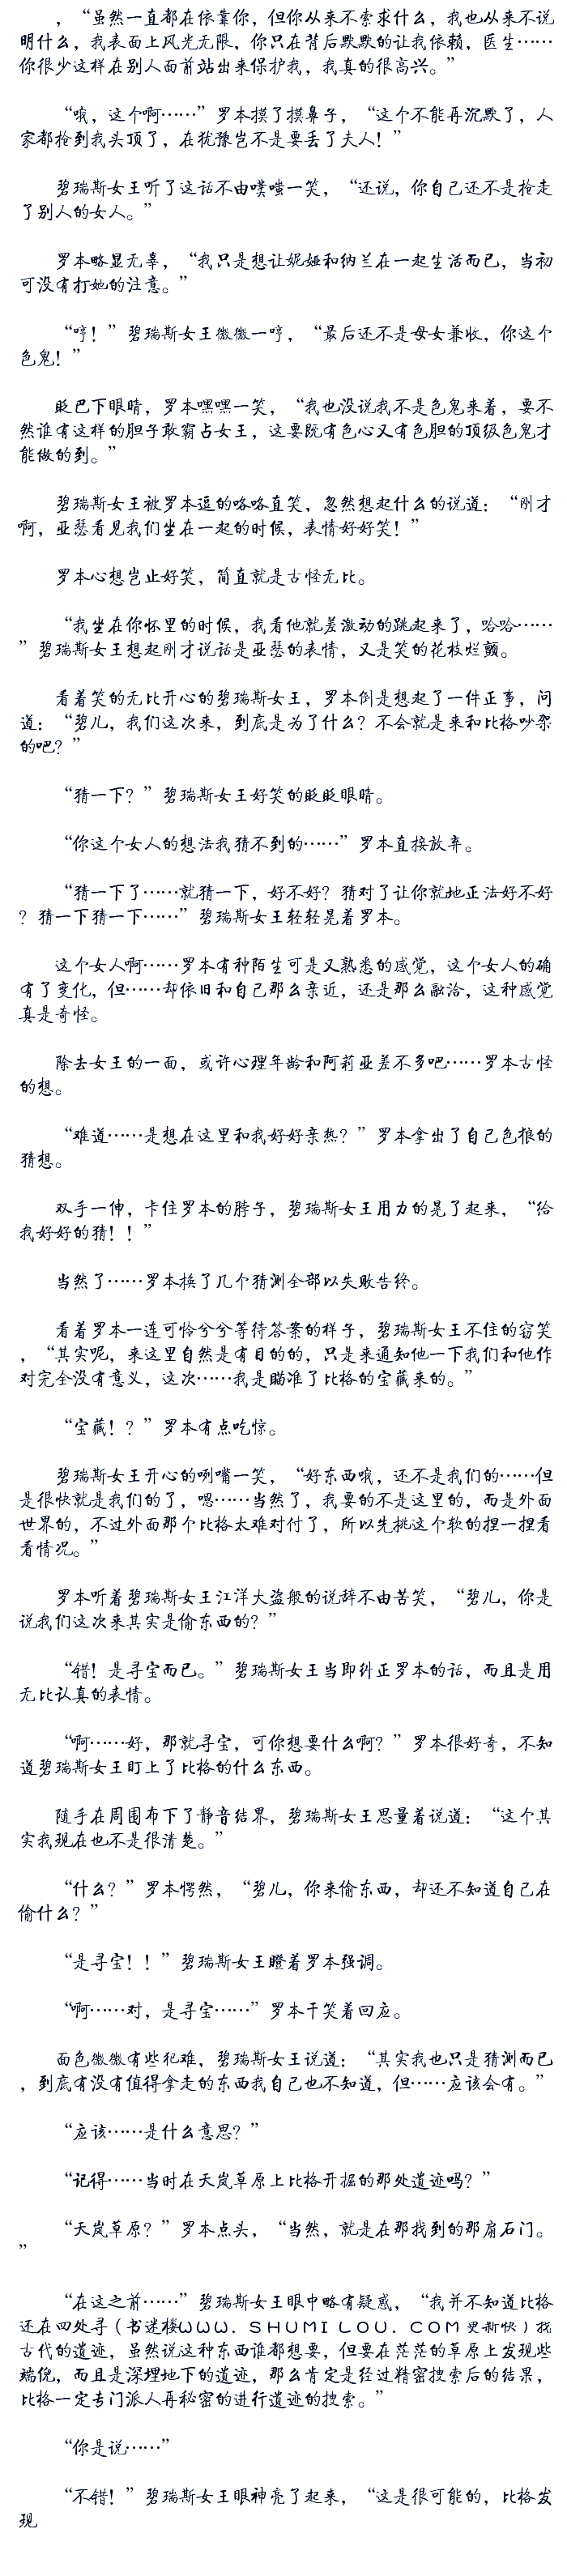 ，“虽然一直都在依靠你，但你从来不索求什么，我也从来不说
明什么，我表面上风光无限，你只在背后默默的让我依赖，医生……
你很少这样在别人面前站出来保护我，我真的很高兴。”
“哦，这个啊……”罗本摸了摸鼻子，“这个不能再沉默了，人
家都抢到我头顶了，在犹豫岂不是要丢了夫人！”
碧瑞斯女王听了这话不由噗嗤一笑，“还说，你自己还不是抢走
了别人的女人。”
罗本略显无辜，“我只是想让妮娅和纳兰在一起生活而已，当初
可没有打她的注意。”
“哼！”碧瑞斯女王微微一哼，“最后还不是母女兼收，你这个
色鬼！”
眨巴下眼睛，罗本嘿嘿一笑，“我也没说我不是色鬼来着，要不
然谁有这样的胆子敢霸占女王，这要既有色心又有色胆的顶级色鬼才
能做的到。”
碧瑞斯女王被罗本逗的咯咯直笑，忽然想起什么的说道：“刚才
啊，亚瑟看见我们坐在一起的时候，表情好好笑！”
罗本心想岂止好笑，简直就是古怪无比。
“我坐在你怀里的时候，我看他就差激动的跳起来了，哈哈……
”碧瑞斯女王想起刚才说话是亚瑟的表情，又是笑的花枝烂颤。
看着笑的无比开心的碧瑞斯女王，罗本倒是想起了一件正事，问
道：“碧儿，我们这次来，到底是为了什么？不会就是来和比格吵架
的吧？”
“猜一下？”碧瑞斯女王好笑的眨眨眼睛。
“你这个女人的想法我猜不到的……”罗本直接放弃。
“猜一下了……就猜一下，好不好？猜对了让你就地正法好不好
？猜一下猜一下……”碧瑞斯女王轻轻晃着罗本。
这个女人啊……罗本有种陌生可是又熟悉的感觉，这个女人的确
有了变化，但……却依旧和自己那么亲近，还是那么融洽，这种感觉
真是奇怪。
除去女王的一面，或许心理年龄和阿莉亚差不多吧……罗本古怪
的想。
“难道……是想在这里和我好好亲热？”罗本拿出了自己色狼的
猜想。
双手一伸，卡住罗本的脖子，碧瑞斯女王用力的晃了起来，“给
我好好的猜！！”
当然了……罗本换了几个猜测全部以失败告终。
看着罗本一连可怜兮兮等待答案的样子，碧瑞斯女王不住的窃笑
，“其实呢，来这里自然是有目的的，只是来通知他一下我们和他作
对完全没有意义，这次……我是瞄准了比格的宝藏来的。”
“宝藏！？”罗本有点吃惊。
碧瑞斯女王开心的咧嘴一笑，“好东西哦，还不是我们的……但
是很快就是我们的了，嗯……当然了，我要的不是这里的，而是外面
世界的，不过外面那个比格太难对付了，所以先挑这个软的捏一捏看
看情况。”
罗本听着碧瑞斯女王江洋大盗般的说辞不由苦笑，“碧儿，你是
说我们这次来其实是偷东西的？”
“错！是寻宝而已。”碧瑞斯女王当即纠正罗本的话，而且是用
无比认真的表情。
“啊……好，那就寻宝，可你想要什么啊？”罗本很好奇，不知
道碧瑞斯女王盯上了比格的什么东西。
随手在周围布下了静音结界，碧瑞斯女王思量着说道：“这个其
实我现在也不是很清楚。”
“什么？”罗本愕然，“碧儿，你来偷东西，却还不知道自己在
偷什么？”
“是寻宝！！”碧瑞斯女王瞪着罗本强调。
“啊……对，是寻宝……”罗本干笑着回应。
面色微微有些犯难，碧瑞斯女王说道：“其实我也只是猜测而已
，到底有没有值得拿走的东西我自己也不知道，但……应该会有。”
“应该……是什么意思？”
“记得……当时在天岚草原上比格开掘的那处遗迹吗？”
“天岚草原？”罗本点头，“当然，就是在那找到的那扇石门。
”
“在这之前……”碧瑞斯女王眼中略有疑惑，“我并不知道比格
还在四处寻（书迷楼WWW．ＳＨＵＭＩＬＯＵ．ＣＯＭ更新快）找
古代的遗迹，虽然说这种东西谁都想要，但要在茫茫的草原上发现些
端倪，而且是深埋地下的遗迹，那么肯定是经过精密搜索后的结果，
比格一定专门派人再秘密的进行遗迹的搜索。”
“你是说……”
“不错！”碧瑞斯女王眼神亮了起来，“这是很可能的，比格发
现